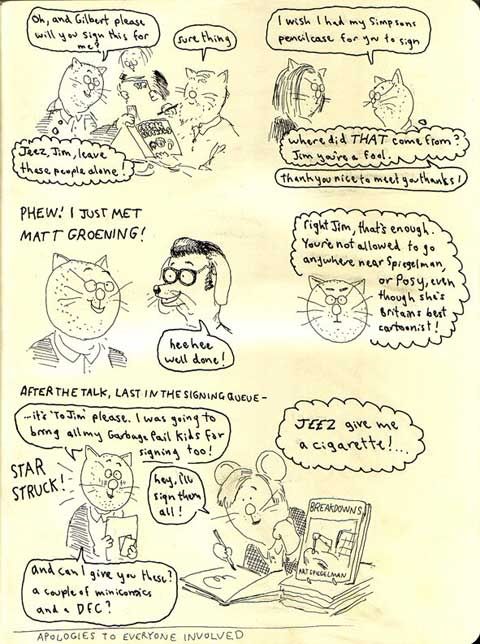 Oh, and Gilbert please
will you sign this for
me?
sure thing
Jeez, Jim, leave
these people alone!
I wish I had my Simpsons
pencilcase for you to sign
where did THAT come from?
Jim you're a fool.
thankyou nice to meet you thanks!
PHEW! I JUST MET
MATT GROENING!
heehee
well done!
right Jim, that's enough.
You're not allowed to go
anywhere near Spiegelman,
or Posy, even
though she's
Britains best
cartoonist!
AFTER THE TALK, LAST IN THE SIGNING QUEUE-
-it's 'To Jim' please. I was going to
bring all my Garbage Pail Kids for
signing too!
STAR
STRUCK!
hey, i'll
sign them
all!
JEEZ give me
a cigarette!...
BREAKDOWNS
ART SPIEGELMAN
and can I give you these?
a couple of minicomics
and a DFC?
APOLOGIES TO EVERYONE INVOLVED